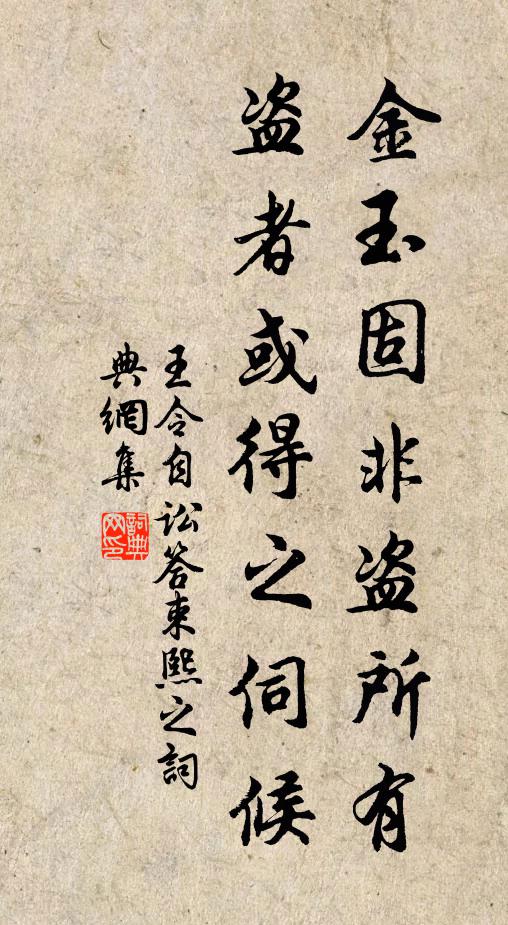 金玉固非盗所有
盗者或得之伺候
王令自讼答束熙之詞
典網集
詞典
网印